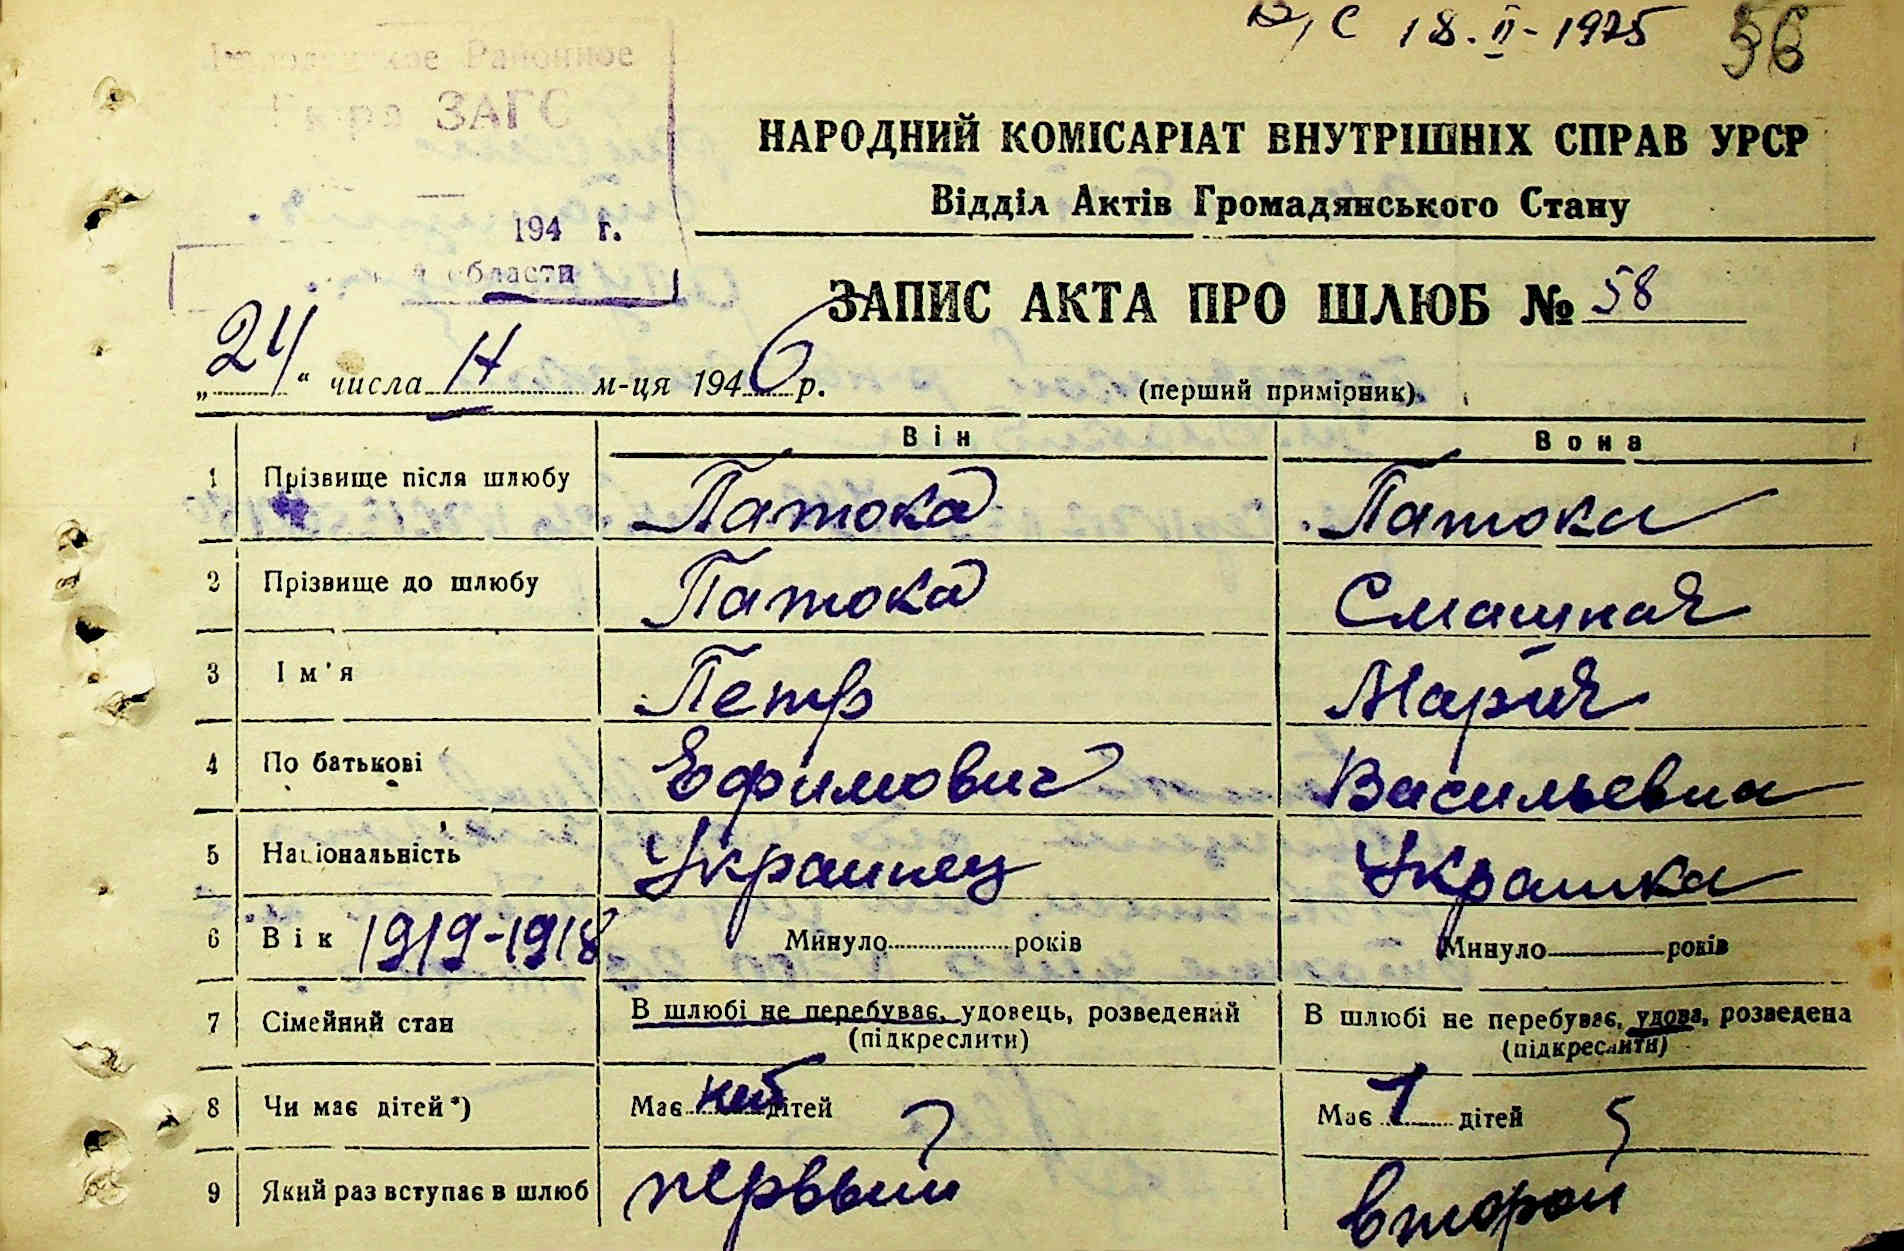 18.II-1975 56
Районное
ЗАГС
194 г.
области
НАРОДНИЙ КОМІСАРІАТ ВНУТРІШНІХ СПРАВ УРСР
Відділ Актів Громадянського Стану
ЗАПИС АКТА ПРО ШЛЮБ № 58
„24“ числа м-ця 1946 р.
(перший примірник)
Він Вона
1 Прізвище після шлюбу Патока Патока
2 Прізвище до шлюбу Патока Смашная
3 Ім'я Петр Мария
4 По батькові Ефимович Васильевна
5 Національність Украинец Украинка
6 Вік 1919-1918 Минуло років Минуло років
7 Сімейний стан В шлюбі не перебуває, удовець, розведений (підкреслити) В шлюбі не перебуває, удова, розведена (підкреслити)
8 Чи має дітей*) Має нет дітей Має 1 дітей
9 Який раз вступає в шлюб первый второй